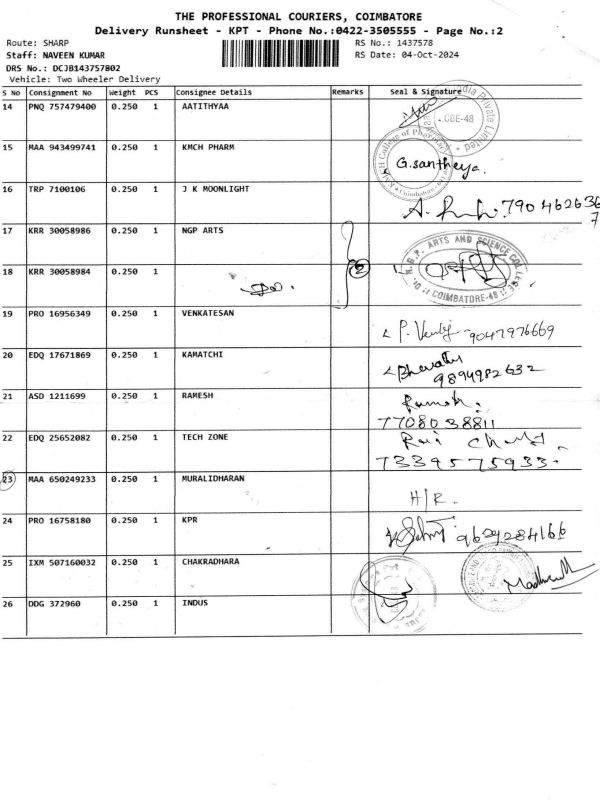 THE PROFESSIONAL COURIERS, COIMBATORE
Delivery Runsheet - KPT - Phone No.:0422-3505555 - Page No.:2
Route: SHARP RS No.: 1437578
Staff: NAVEEN KUMAR RS Date: 04-Oct-2024
DRS No.: DCJB143757802
Vehicle: Two Wheeler Delivery
S No Consignment No Weight PCS Consignee Details Remarks Seal & Signature
14 PNQ 757479400 0.250 1 AATITHYAA CBE-48
15 MAA 943499741 0.250 1 KMCH PHARM G.santheya.
16 TRP 7100106 0.250 1 J K MOONLIGHT
17 KRR 30058986 0.250 1 NGP ARTS
ARTS AND SCIENCE COLLEGE
18 KRR 30058984 0.250 1 2
COIMBATORE-48
19 PRO 16956349 0.250 1 VENKATESAN 9047976669
20 EDQ 17671869 0.250 1 KAMATCHI 9894982632
21 ASD 1211699 0.250 1 RAMESH Ramesh.
7708038811
22 EDQ 25652082 0.250 1 TECH ZONE
73395 75933.
23 MAA 650249233 0.250 1 MURALIDHARAN H/R.
24 PRO 16758180 0.250 1 KPR 9629284166
25 IXM 507160032 0.250 1 CHAKRADHARA
26 DDG 372960 0.250 1 INDUS